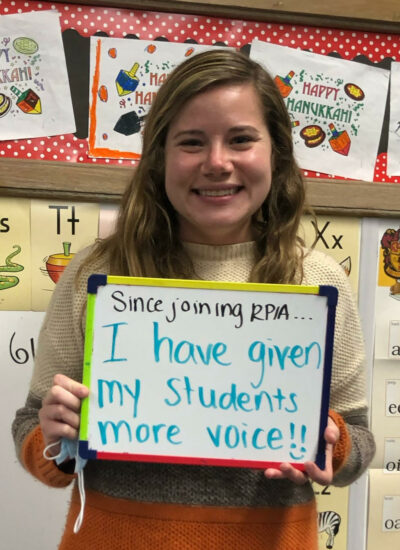 HAPPY
HANUKKAH!
HAPPY
HANUKKAH!
Tt
Xx
6
Since joining RPIA...
I have given
my Students
more voice!!
oi